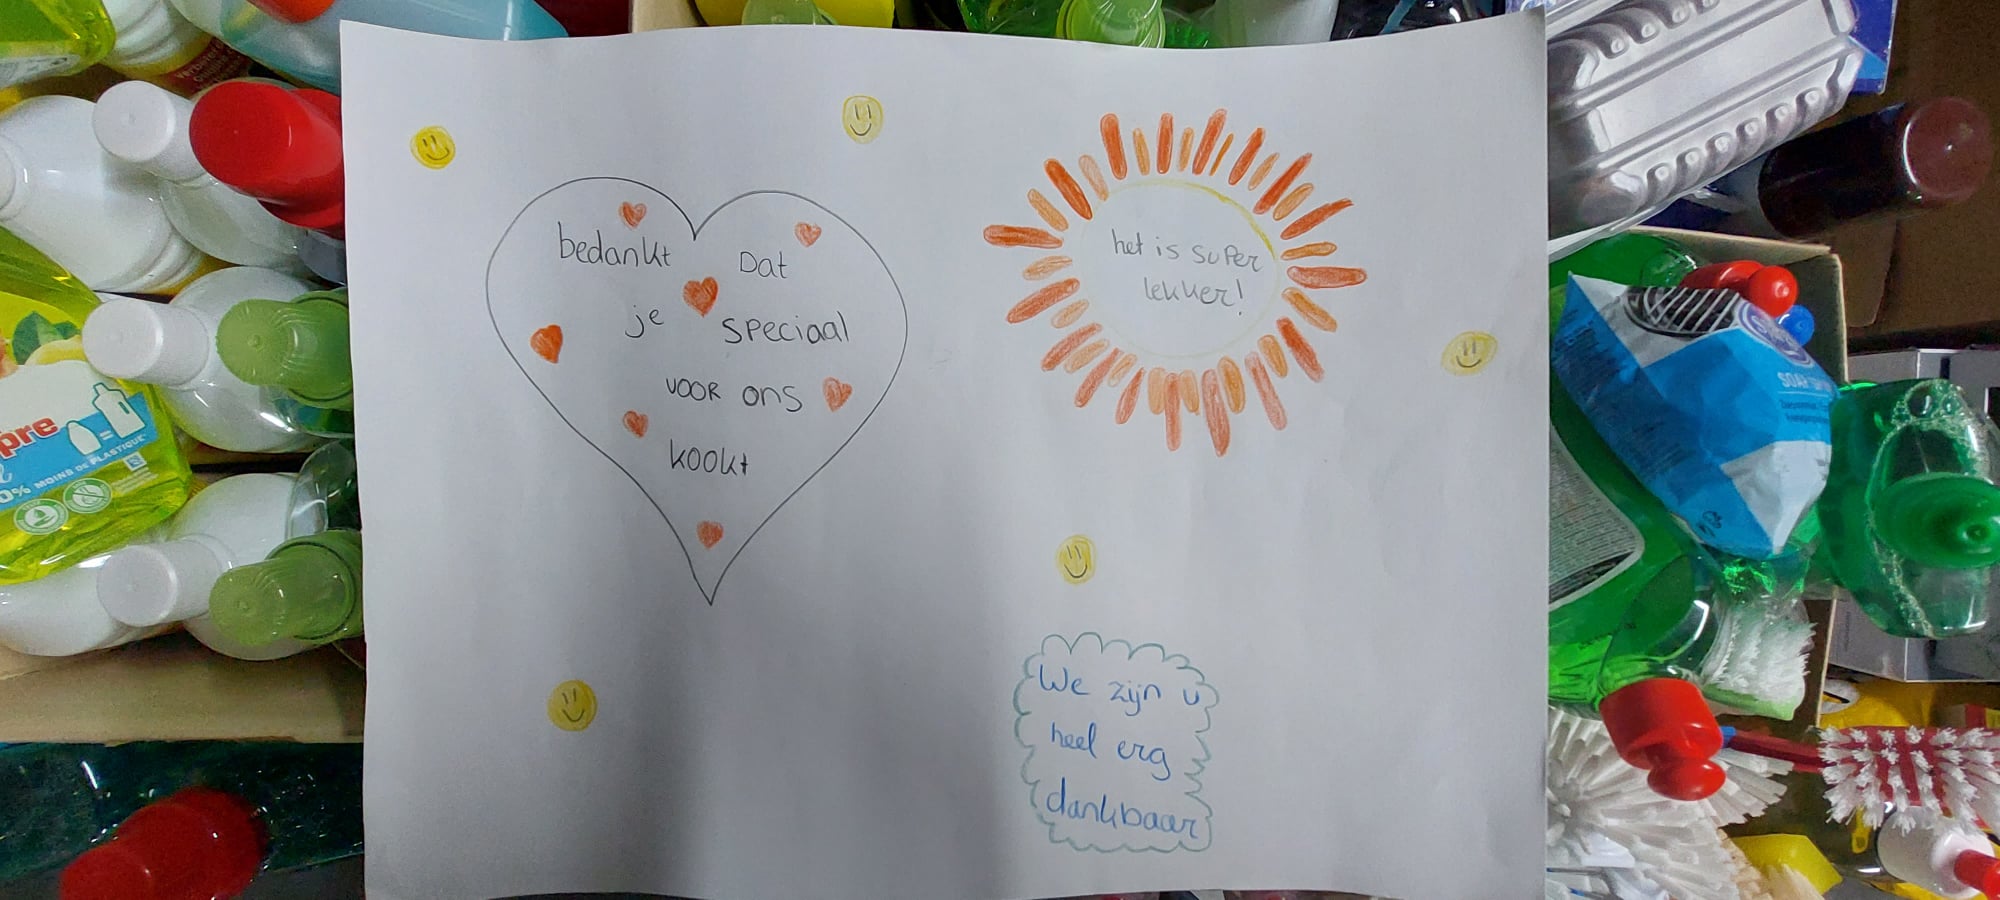 bedankt Dat
je speciaal
voor ons
kookt
het is super
lekker!
We zijn u
heel erg
dankbaar
pre
0% MOINS DE PLASTIQUE*